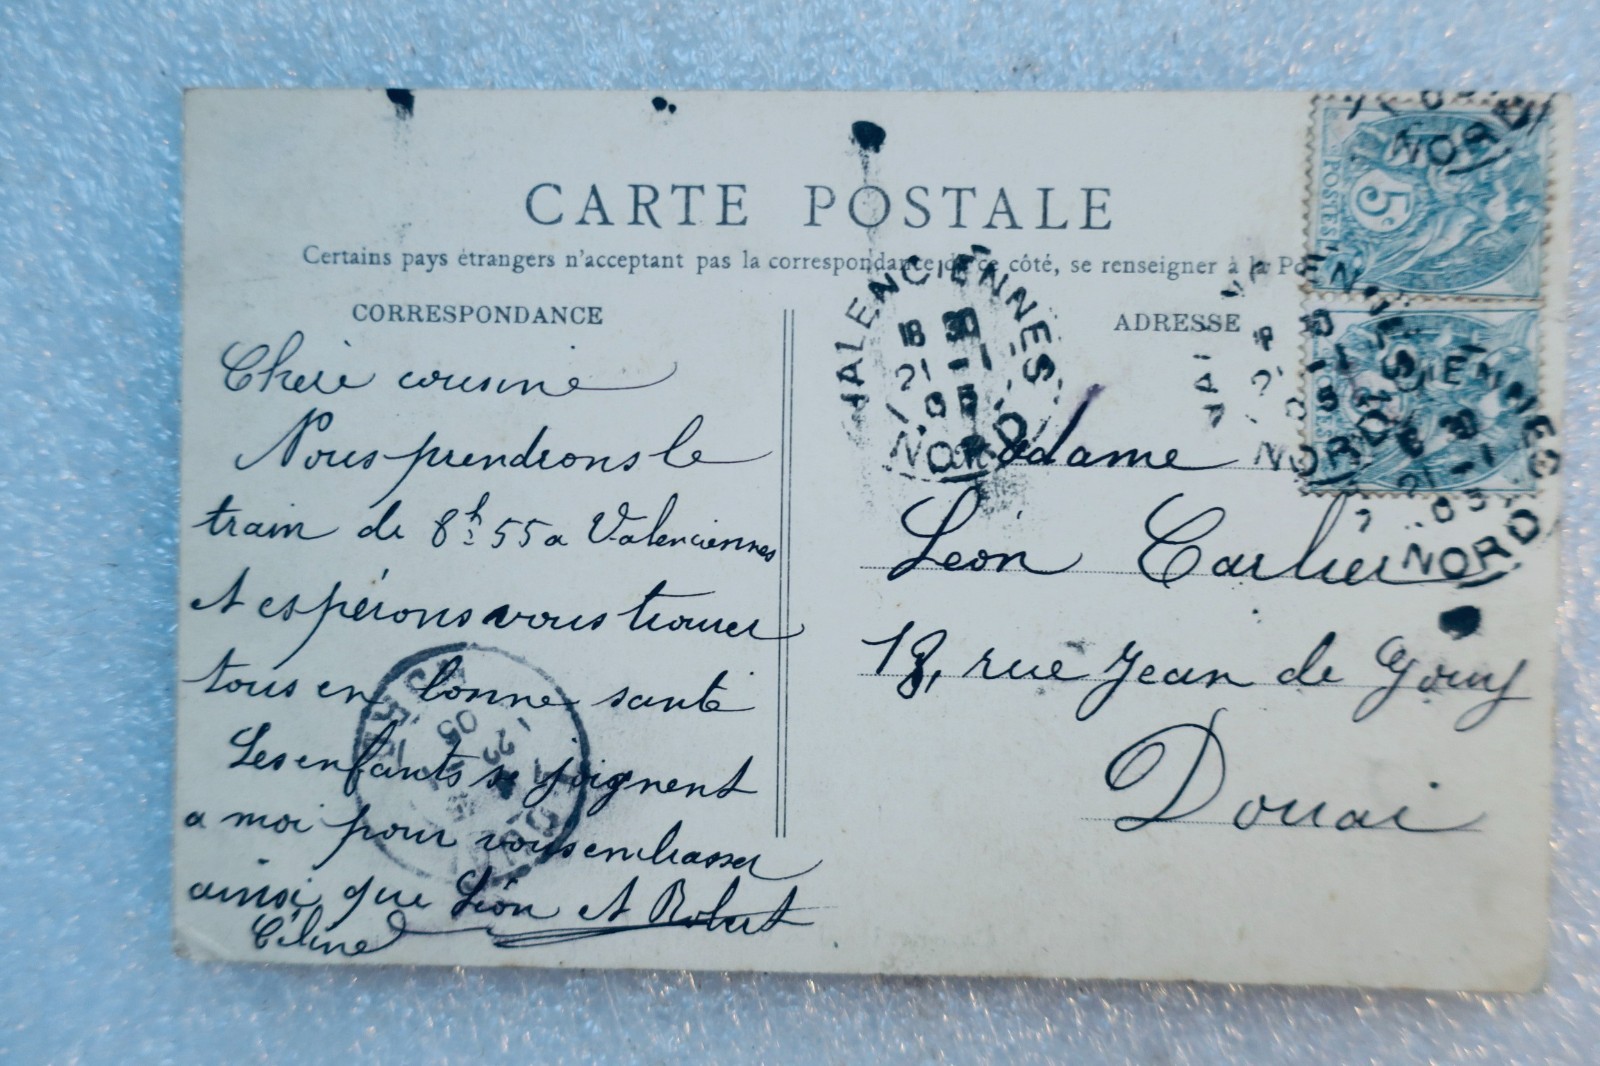 CARTE POSTALE
Certains pays étrangers n'acceptant pas la correspondance de ce côté, se renseigner à la Po
CORRESPONDANCE
Chère cousine
Nous prendrons le
train de 8h 55 a Valenciennes
et espérons vous trouver
tous en bonne santé
Les enfants se joignent
a moi pour vous embrasser
ainsi que Léon et Robert
Céline
ADRESSE
Madame
Léon Carlier
18, rue Jean de Gouy
Douai
VALENCIENNES
18 30
21 - 1
05
NORD
POSTES
5c
NORD
VALENCIENNES
18 30
21 - 1
05
NORD
18 30
21 - 1
05
NORD
DOUAI
22
05